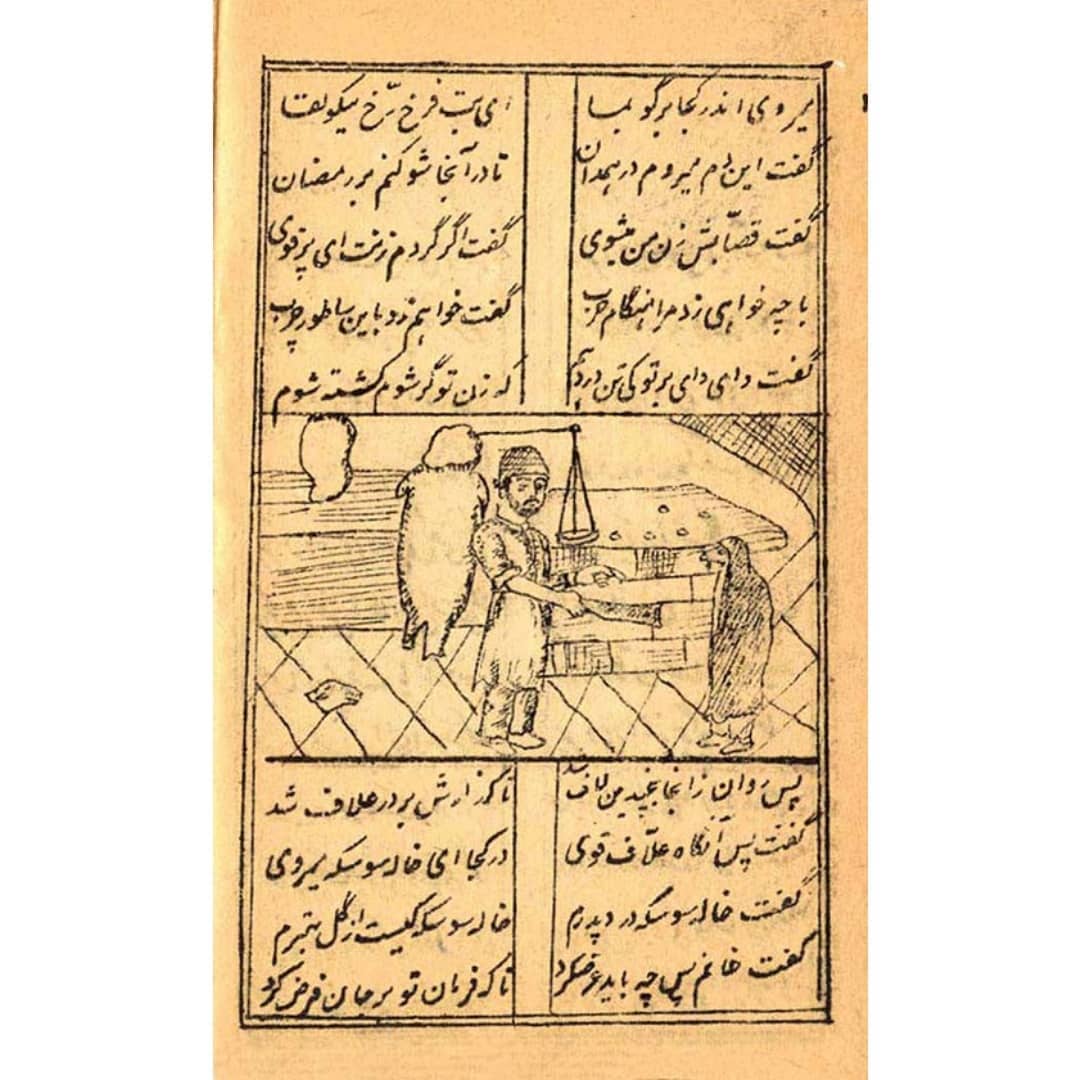 میروی اندر کجا برگو بما ای بت فرخ رّخ نیکو لقا
گفت این دم میروم در همدان تا در آنجا شو کنم بر رمضان
گفت قصّابش زن من میشوی گفت اگر گردم زنت ای پر قوی
با چه خواهی زد مرا هنگام حرب گفت خواهم زد باین ساطور چرب
گفت وای وای بر تو کی تن دردهم که زن تو گر شوم کشته شوم
پس روان زانجا شد تا گذارش بر در علاف شد
گفت پس آنگاه علّاف قوی در کجا ای خاله سوسکه میروی
گفت خاله سوسکه در خاله سوسکه کیست از گل بهترم
گفت خانم پس چه باید عرض کرد تا که فرمان تو بر جان فرض کرد